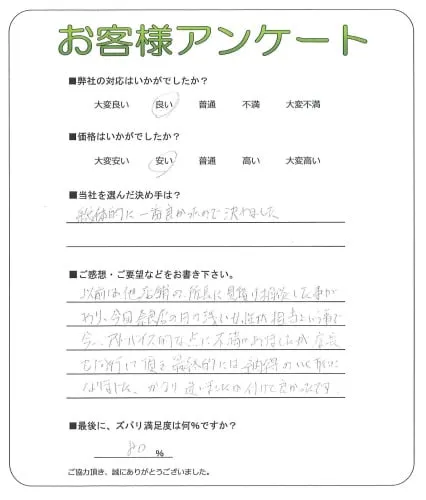 お客様アンケート
■弊社の対応はいかがでしたか？
大変良い 良い 普通 不満 大変不満
■価格はいかがでしたか？
大変安い 安い 普通 高い 大変高い
■当社を選んだ決め手は？
総体的に一番良かったので決めました
■ご感想・ご要望などをお書き下さい。
以前は他店舗の所長に見積り相談した事が
あり、今回奈良店の日の浅い女性が担当という事で
アドバイス的な点に不満が
頂き最終的には納得のいく
なりました、かなり迷いましたが付けて良かったです。
■最後に、ズバリ満足度は何%ですか？
80 %
ご協力頂き、誠にありがとうございました。